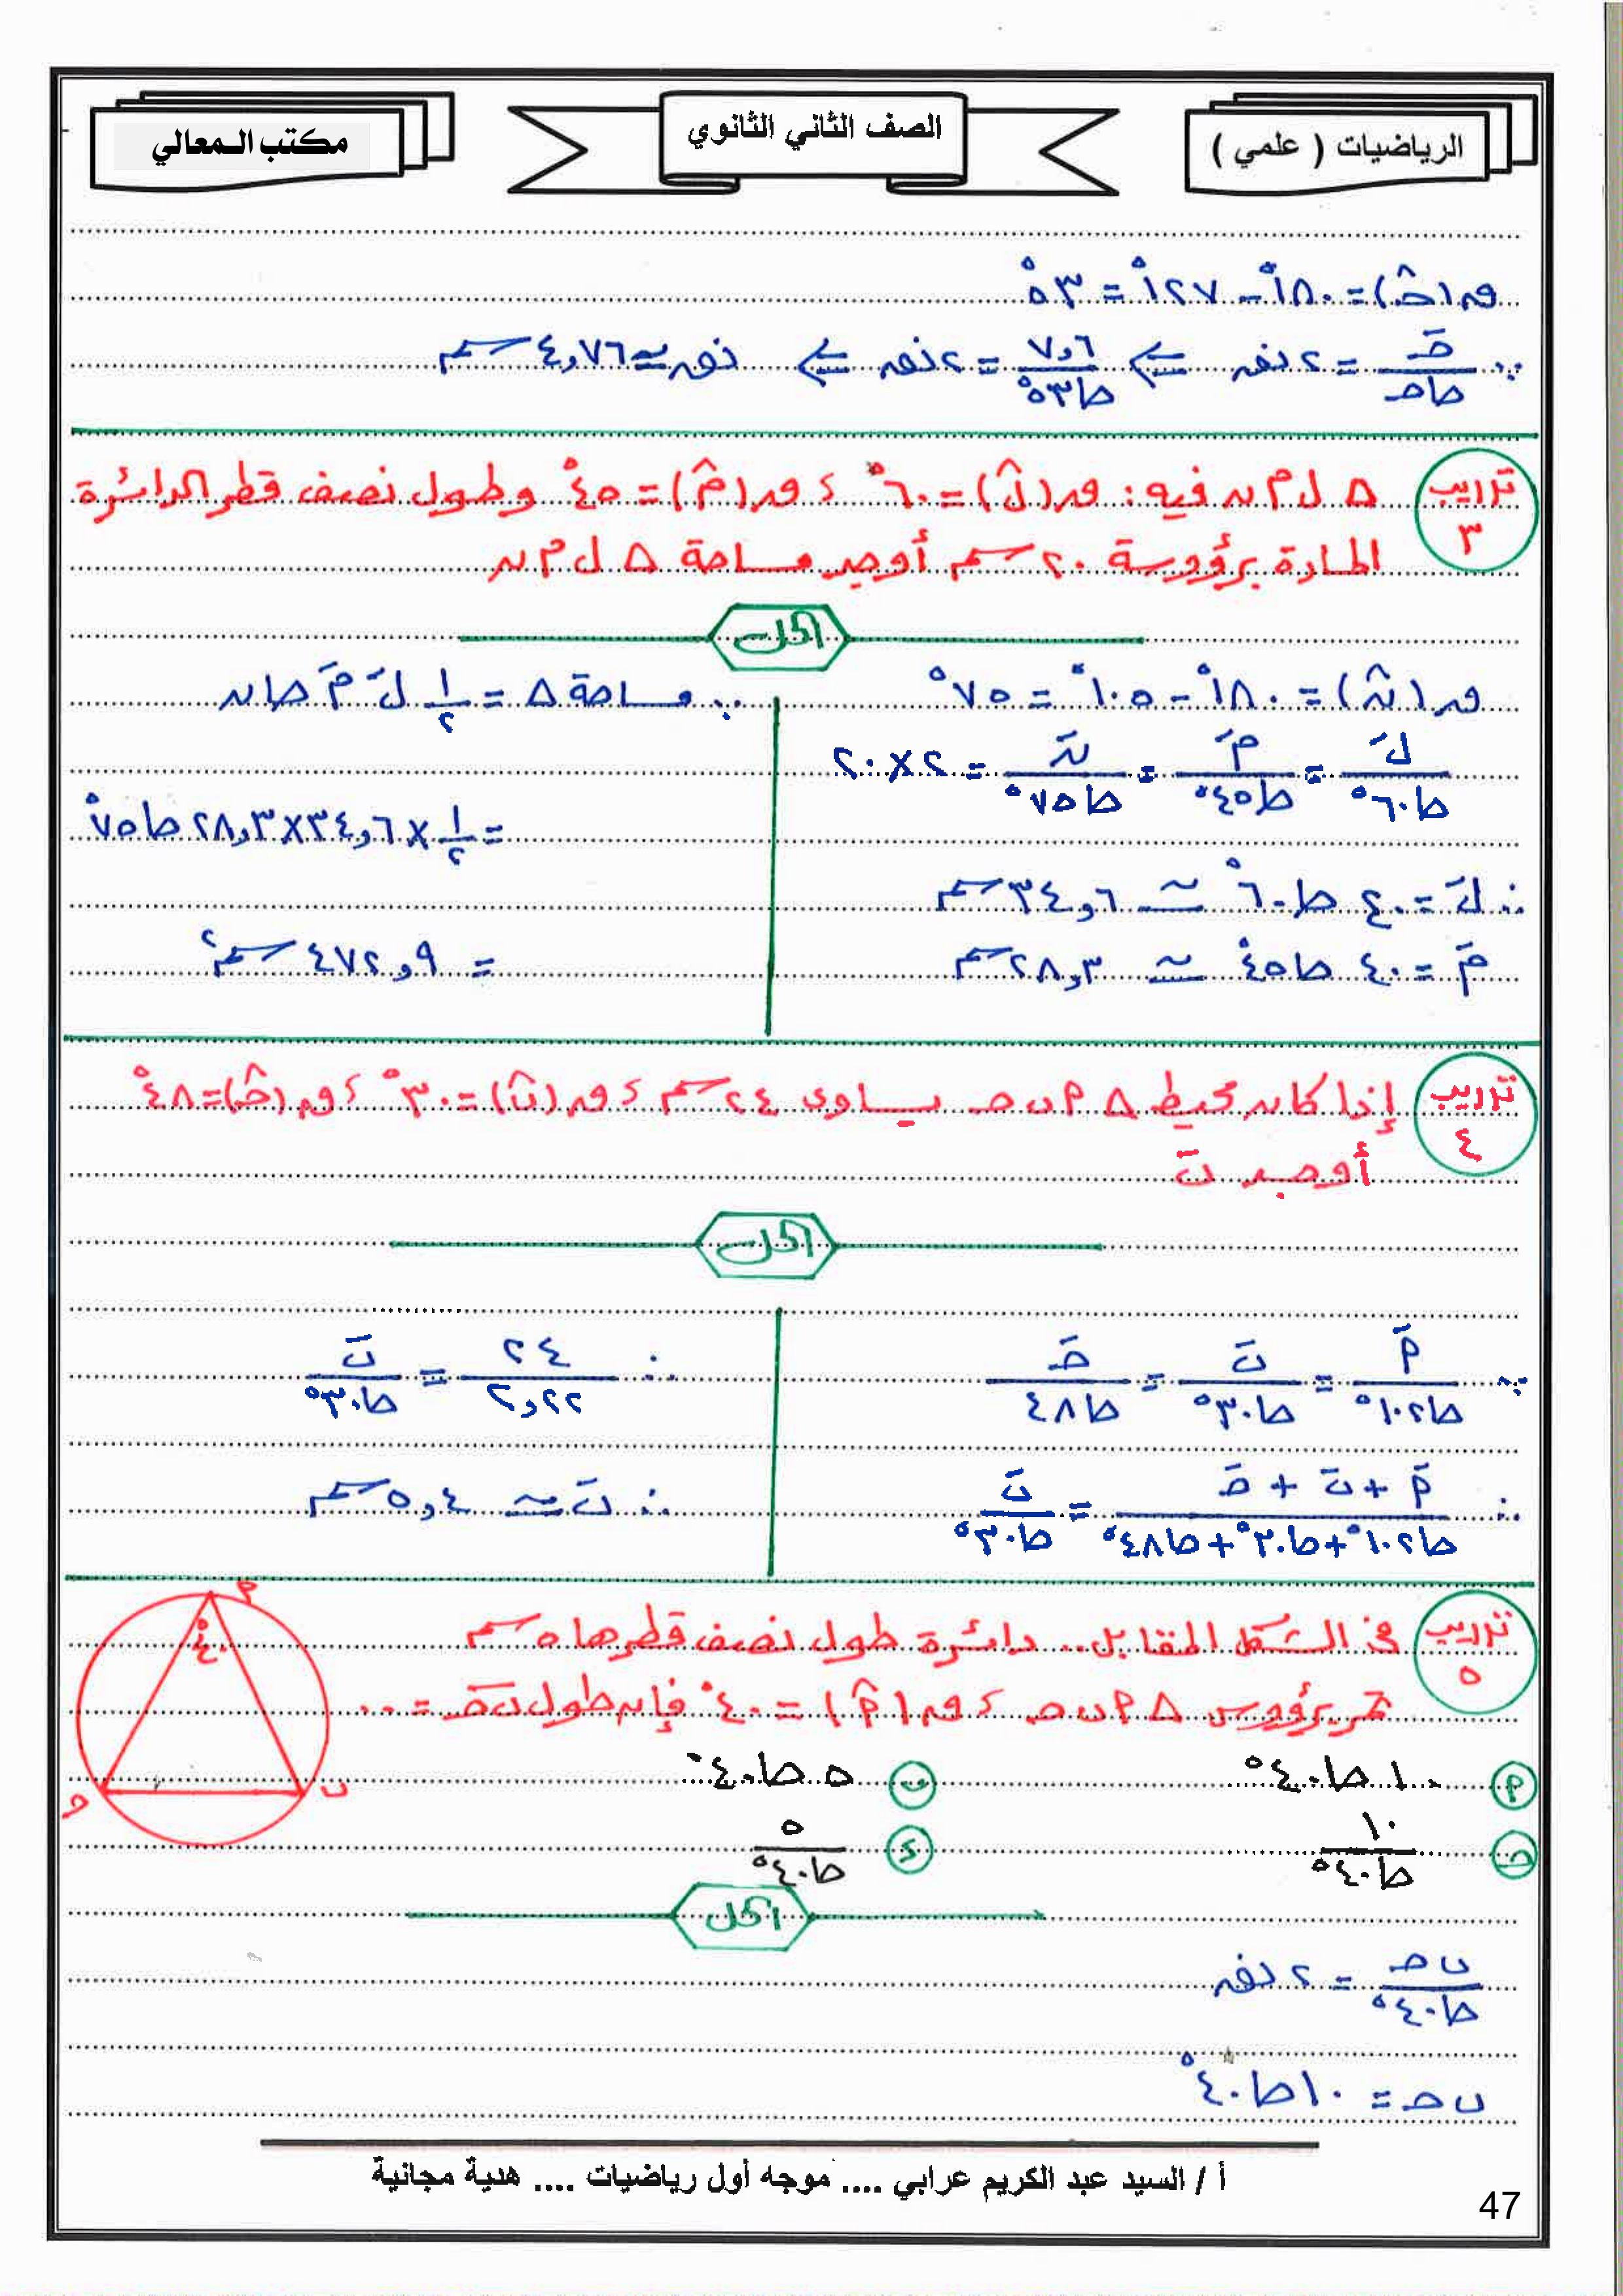 الرياضيات ( علمي )
الصف الثاني الثانوي
مكتب المعالي
ق(حـ̂) = ١٨٠° − ١٢٧° = ٥٣°
∵ حـَ / حا حـ = ٢ نق ⇐ ٧,٦ / حا ٥٣° = ٢ نق ⇐ نق ≃ ٤,٧٦ سم
تدريب ٣
△ ل م ن فيه : ق(ل̂) = ٦٠° ، ق(م̂) = ٤٥° وطول نصف قطر الدائرة
المارة برؤوسة ٢٠ سم أوجد مساحة △ ل م ن
الحل
ق(ن̂) = ١٨٠° − ١٠٥° = ٧٥°
لَ / حا ٦٠° = مَ / حا ٤٥° = نَ / حا ٧٥° = ٢ × ٢٠
∴ لَ = ٤٠ حا ٦٠° ≃ ٣٤,٦ سم
مَ = ٤٠ حا ٤٥° ≃ ٢٨,٣ سم
∴ مساحة △ = ١/٢ لَ مَ حا ن
= ١/٢ × ٣٤,٦ × ٢٨,٣ حا ٧٥°
= ٤٧٢,٩ سم٢
تدريب ٤
إذا كان محيط △ م ب حـ يساوى ٢٤ سم ، ق(ب̂) = ٣٠° ، ق(حـ̂) = ٤٨°
أوجد بَ
الحل
∵ مَ / حا ١٠٢° = بَ / حا ٣٠° = حـَ / حا ٤٨
∴ مَ + بَ + حـَ / حا ١٠٢° + حا ٣٠° + حا ٤٨° = بَ / حا ٣٠°
∴ ٢٤ / ٢,٢٢ = بَ / حا ٣٠°
∴ بَ ≃ ٥,٤ سم
تدريب ٥
فى الشكل المقابل .. دائرة طول نصف قطرها ٥ سم
تمر برؤوس △ م ب حـ ، ق(م̂) = ٤٠° فإن طول ب حـ = ...
م
٤٠°
ب
حـ
م ١٠ حا ٤٠°
ب ٥ حا ٤٠°
حـ ١٠ / حا ٤٠°
د ٥ / حا ٤٠°
الحل
ب حـ / حا ٤٠° = ٢ نق
ب حـ = ١٠ حا ٤٠°
أ / السيد عبد الكريم عرابي .... موجه أول رياضيات .... هدية مجانية
47